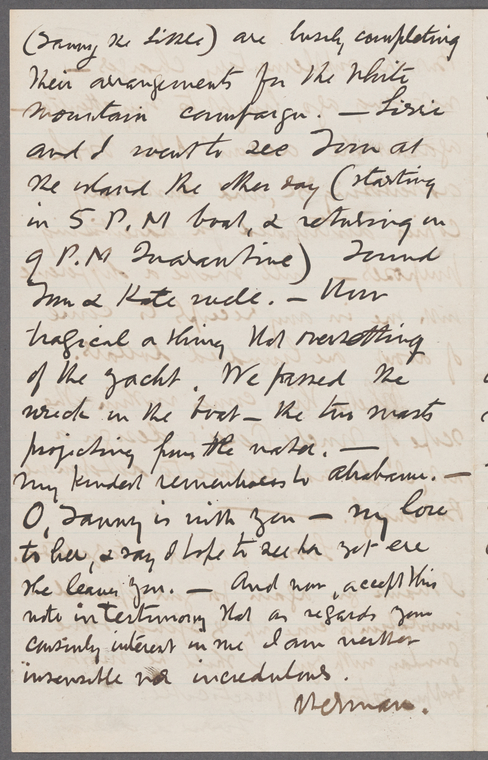 (Fanny the Lizzie) are busily completing
their arrangements for the White
Mountain campaign. — Lizzie
and I went to see Tom at
the island the other day (starting
in 5 P.M boat, & returning in
9 P.M Quarantine) Found
Tom & Kate well. — How
tragical a thing that oversetting
of the yacht. We passed the
wreck in the boat — the two masts
projecting from the water. —
My kindest remembrances to Abraham. —
O, Fanny is with you — my love
to her, & say I hope to see her yet ere
she leaves you. — And now, accept this
note in testimony that as regards your
cousinly interest in me I am neither
insensible nor incredulous.
Herman.